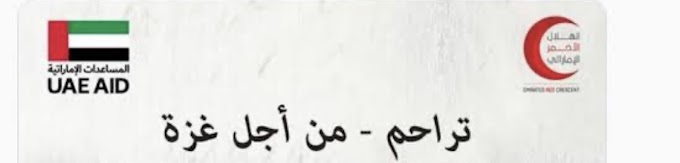 المساعدات الإماراتية
UAE AID
الهلال
الأحمر
الإماراتي
EMIRATES RED CRESCENT
تراحم - من أجل غزة